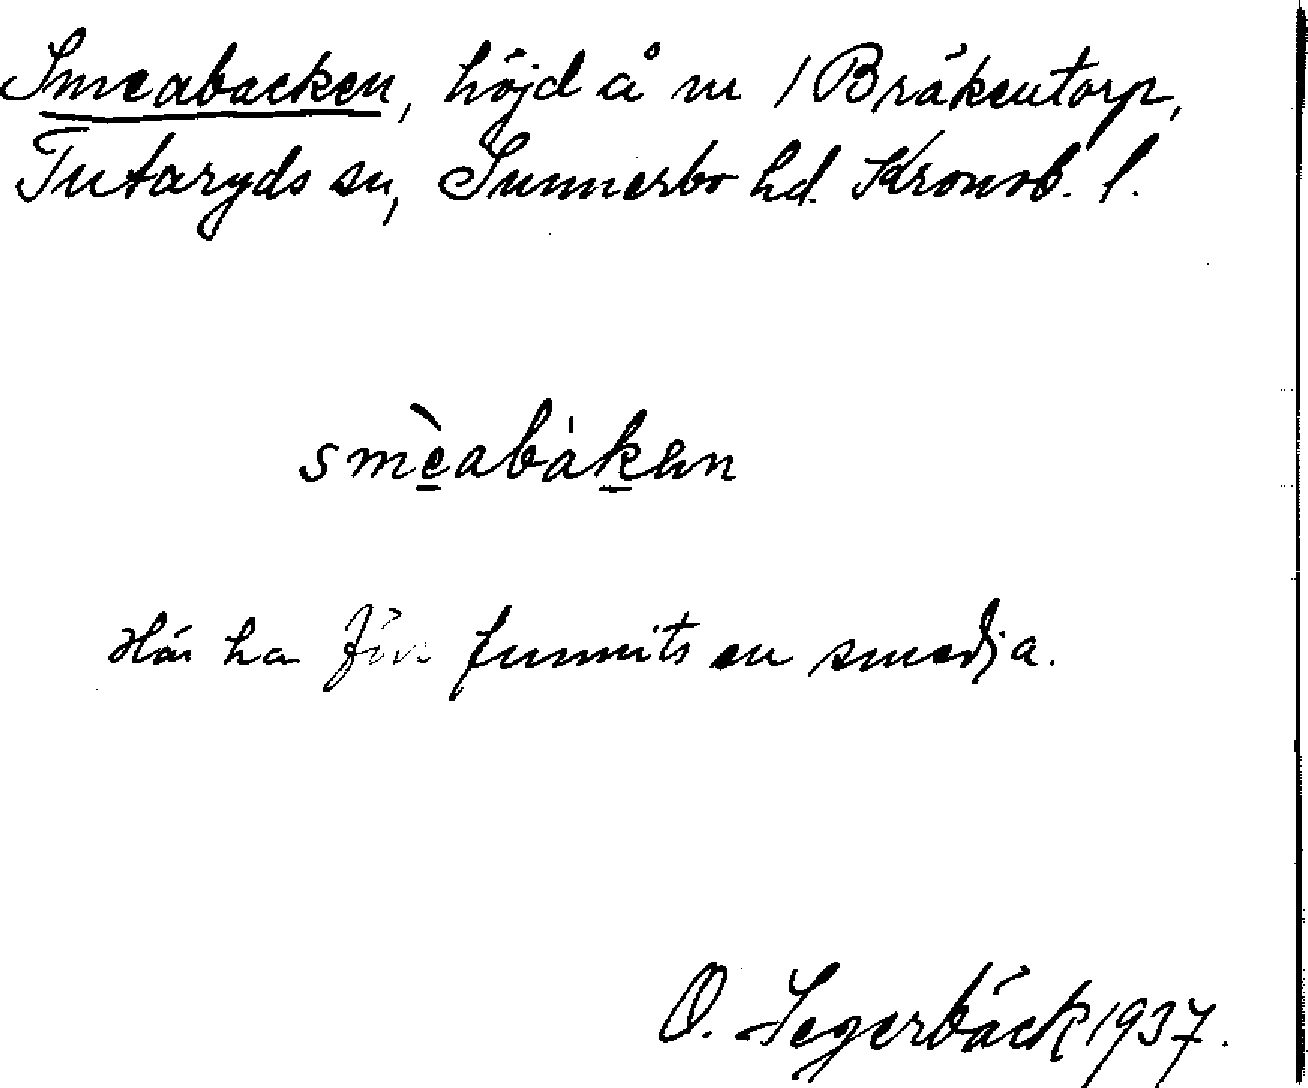 Smeabacken, höjd å nr 1 Bräkentorp,
Tutaryds sn, Sunnerbo hd. Kronob. l.
smèabàken
Här ha förr funnits en smedja.
O. Segerbäck 1937.